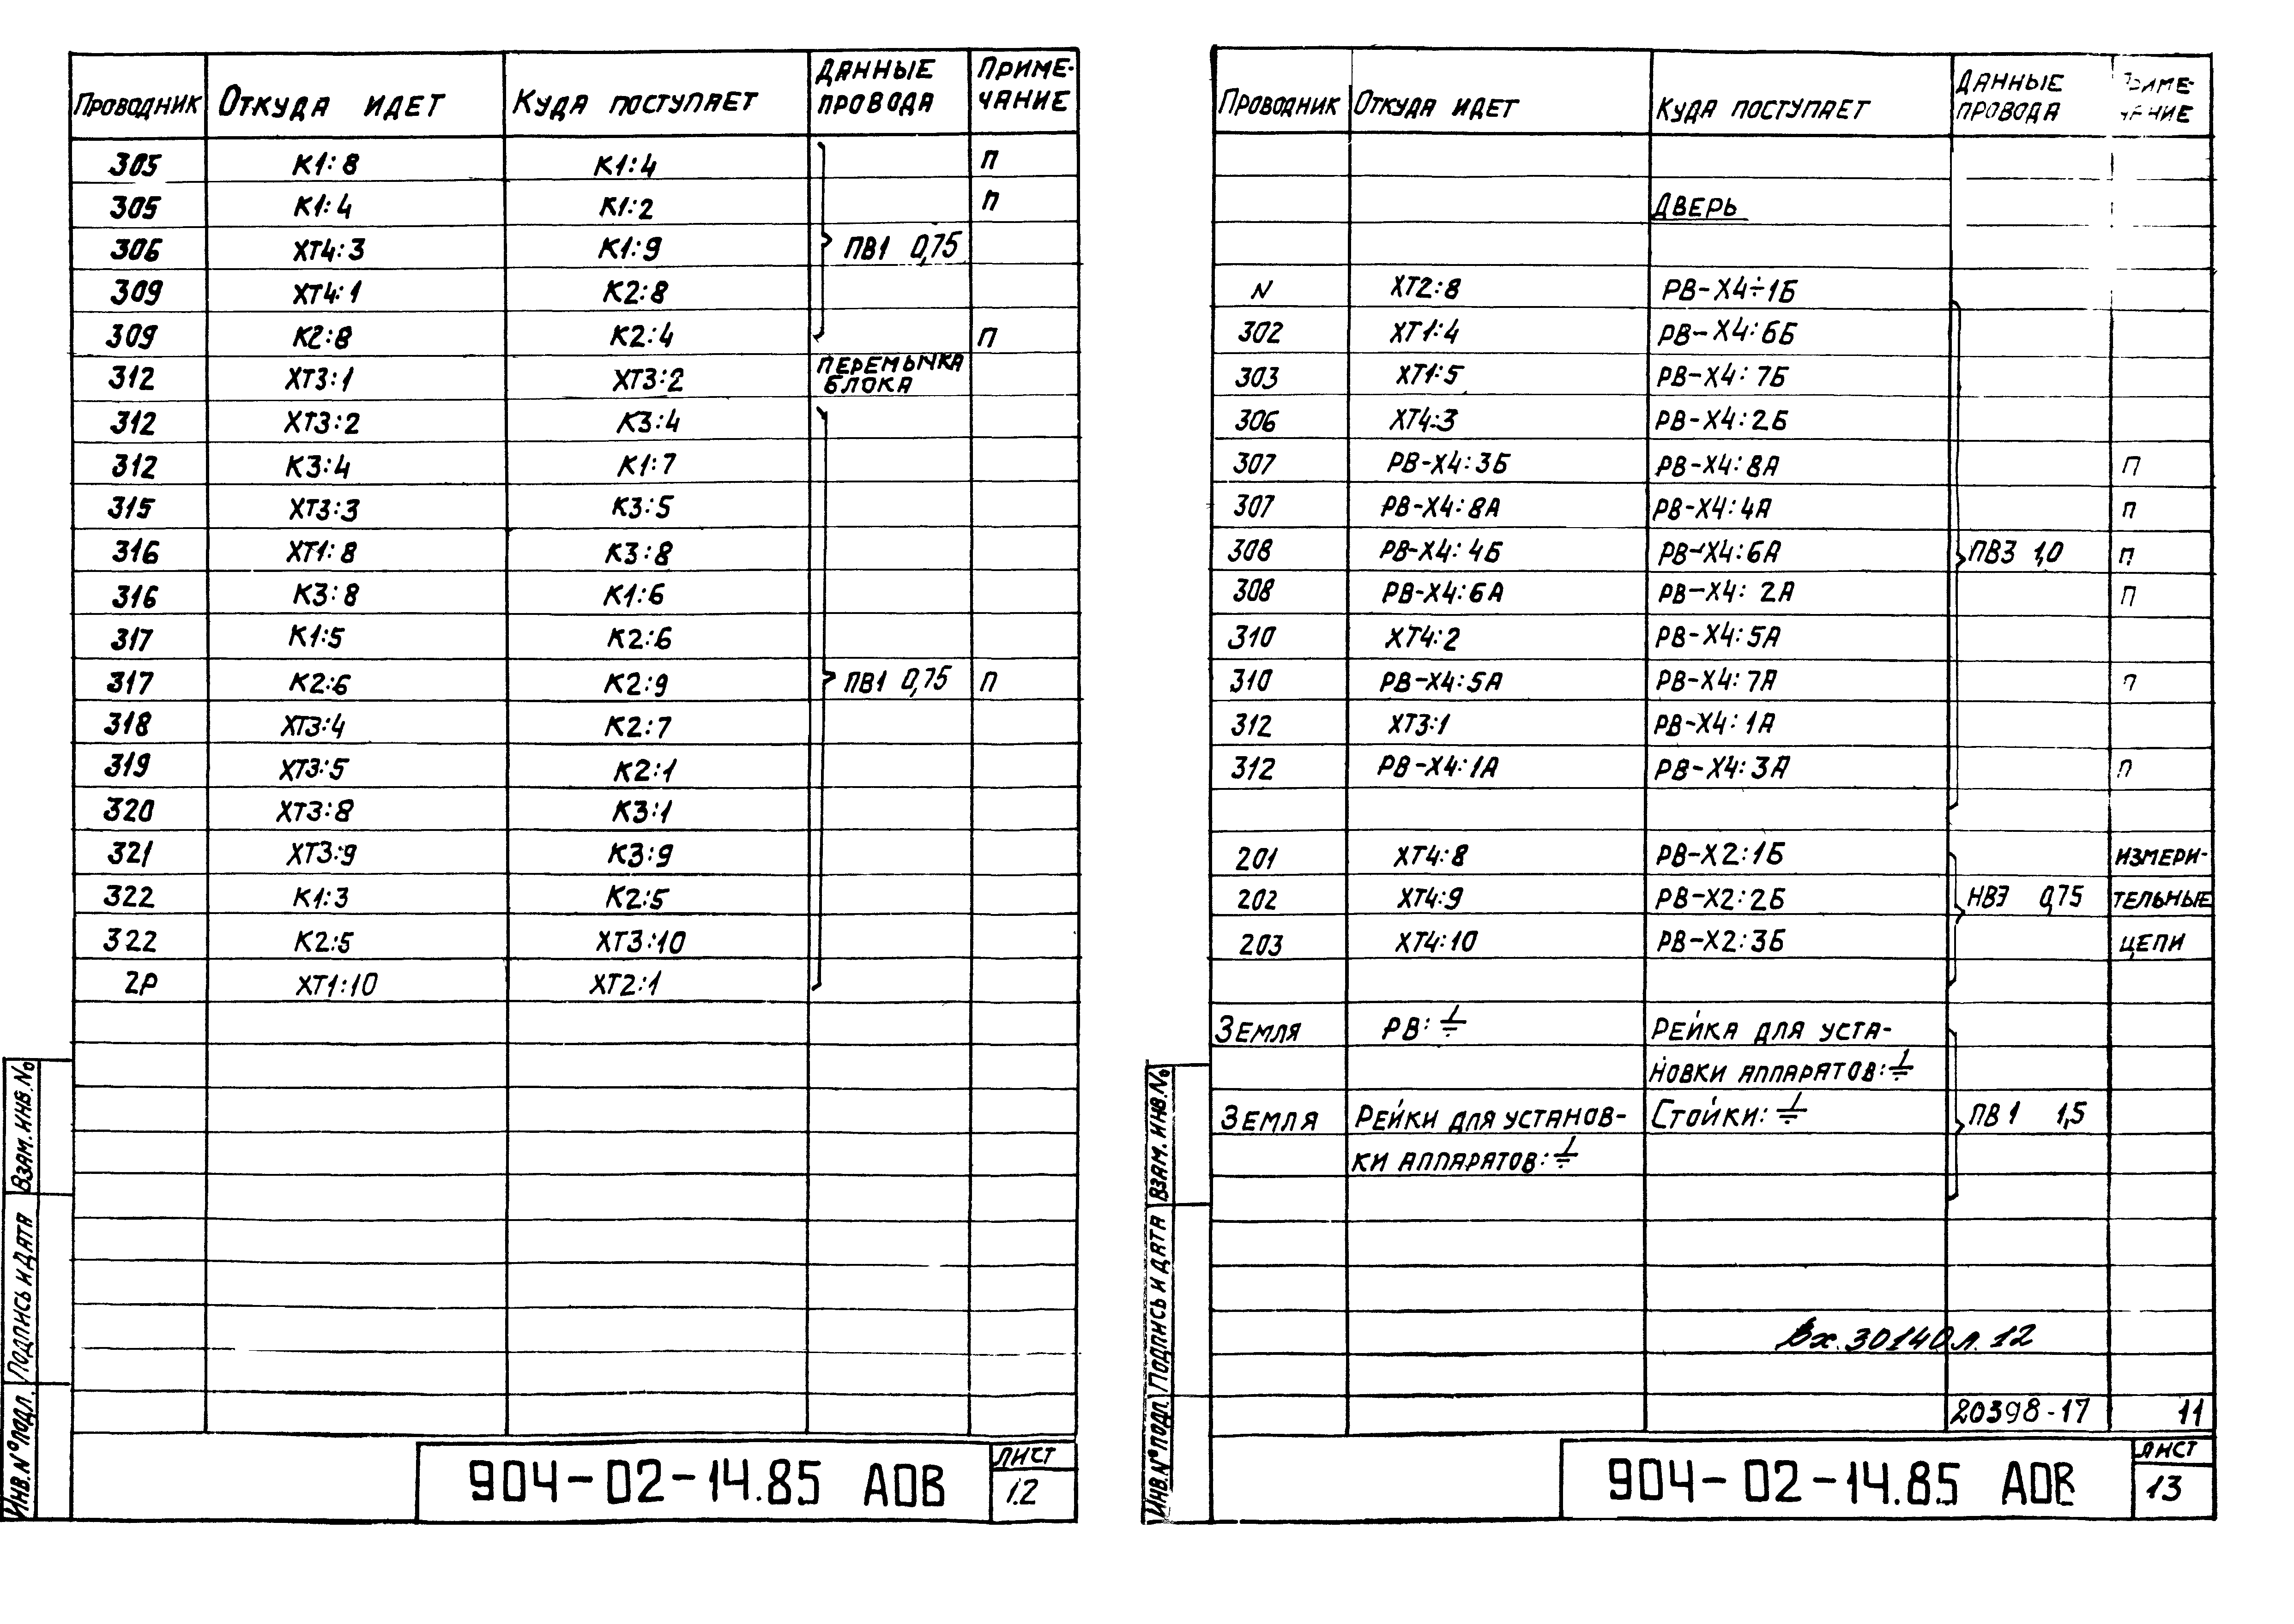 Проводник Откуда идет Куда поступает Данные провода Приме-чание
305 К1:8 К1:4 П
305 К1:4 К1:2 П
306 ХТ4:3 К1:9 ПВ1 0,75
309 ХТ4:1 К2:8
309 К2:8 К2:4 П
312 ХТ3:1 ХТ3:2 Перемычка блока
312 ХТ3:2 К3:4
312 К3:4 К1:7
315 ХТ3:3 К3:5
316 ХТ1:8 К3:8
316 К3:8 К1:6
317 К1:5 К2:6
317 К2:6 К2:9 ПВ1 0,75 П
318 ХТ3:4 К2:7
319 ХТ3:5 К2:1
320 ХТ3:8 К3:1
321 ХТ3:9 К3:9
322 К1:3 К2:5
322 К2:5 ХТ3:10
2Р ХТ1:10 ХТ2:1
Взам. инв. №
Подпись и дата
Инв. № подл.
904-02-14.85 АОВ
Лист
12
Проводник Откуда идет Куда поступает Данные провода Приме-чание
Дверь
N ХТ2:8 РВ-Х4÷1Б
302 ХТ1:4 РВ-Х4:6Б
303 ХТ1:5 РВ-Х4:7Б
306 ХТ4:3 РВ-Х4:2Б
307 РВ-Х4:3Б РВ-Х4:8А П
307 РВ-Х4:8А РВ-Х4:4А П
308 РВ-Х4:4Б РВ-Х4:6А ПВ3 1,0 П
308 РВ-Х4:6А РВ-Х4:2А П
310 ХТ4:2 РВ-Х4:5А
310 РВ-Х4:5А РВ-Х4:7А П
312 ХТ3:1 РВ-Х4:1А
312 РВ-Х4:1А РВ-Х4:3А П
201 ХТ4:8 РВ-Х2:1Б Измери-
202 ХТ4:9 РВ-Х2:2Б НВЭ 0,75 тельные
203 ХТ4:10 РВ-Х2:3Б цепи
Земля РВ:⏚ Рейка для уста-
новки аппаратов:⏚
Земля Рейки для установ- Стойки:⏚ ПВ1 1,5
ки аппаратов:⏚
Вх.30140 л.12
20398-17 11
Взам. инв. №
Подпись и дата
Инв. № подл.
904-02-14.85 АОВ
Лист
13